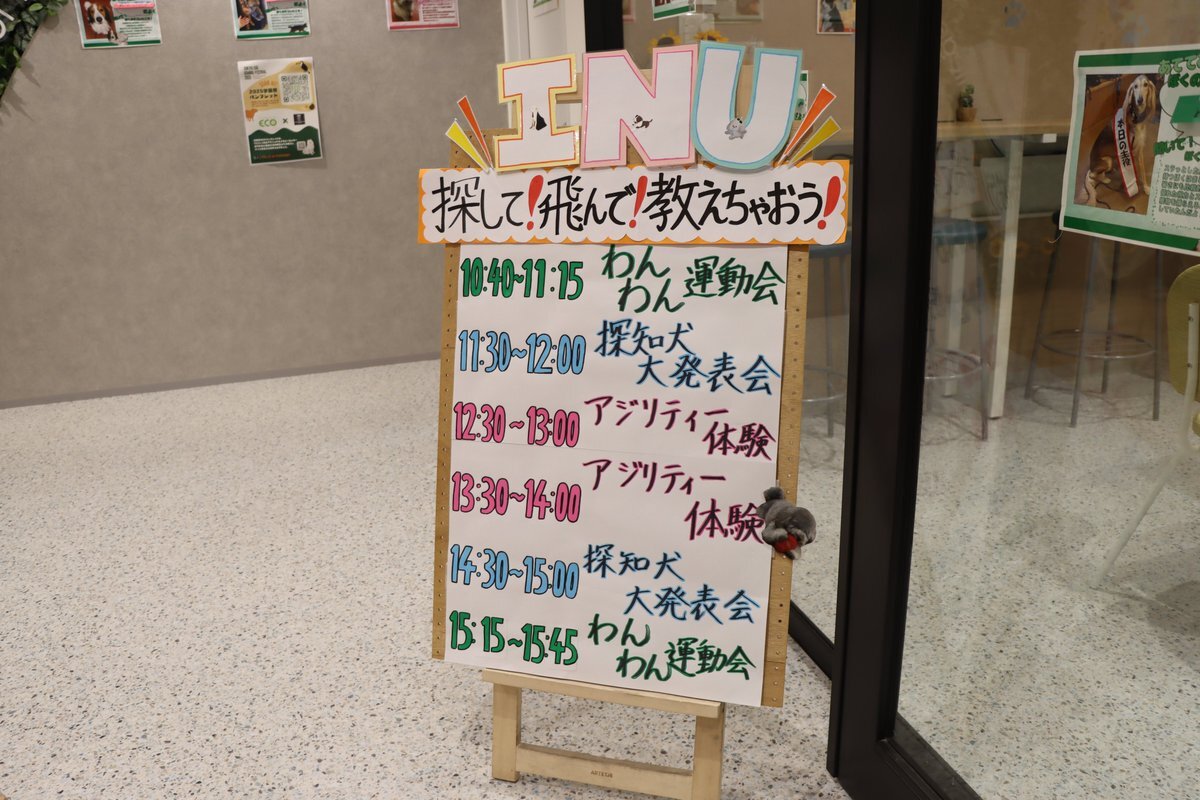 INU
探して!飛んで!教えちゃおう!
10:40~11:15 わんわん運動会
11:30~12:00 探知犬
大発表会
12:30~13:00 アジリティー
体験
13:30~14:00 アジリティー
体験
14:30~15:00 探知犬
大発表会
15:15~15:45 わんわん運動会
ECO
本日の主役